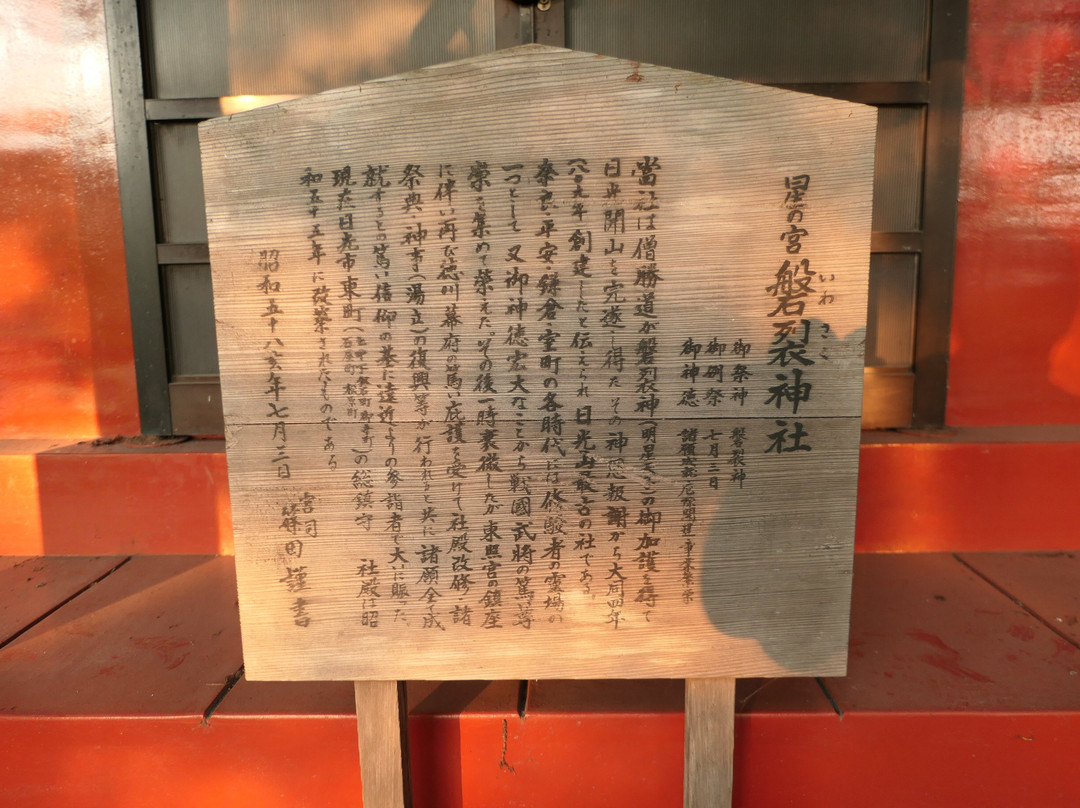 星の宮 磐列衣神社
いわ さく
御祭神 磐裂神
御例祭 七月三日
御神徳 諸願成就
當社は僧勝道が磐列衣神(明星天子)の御加護を得て
日光開山を完遂し得た その神恩報謝から大同四年
(八〇九年)創建したと伝えられ 日光山最古の社である
奈良・平安・鎌倉・室町の各時代には修験者の霊場の
一つとして 又御神徳宏大なことから戦國武将の篤い尊
崇を集めて栄えた。その後一時衰微したが東照宮の鎮座
に伴い再び徳川幕府の篤い庇護を受けて社殿改修 諸
祭典・神事(湯立)の復興等が行われると共に 諸願全て成
就するとの篤い信仰の基に遠近よりの参詣者で大いに賑った
現在日光市東町(石屋町 松原町)の総鎮守 社殿は昭
和五十五年に改築されたものである
昭和五十八亥年七月三日
宮司 篠田 謹書